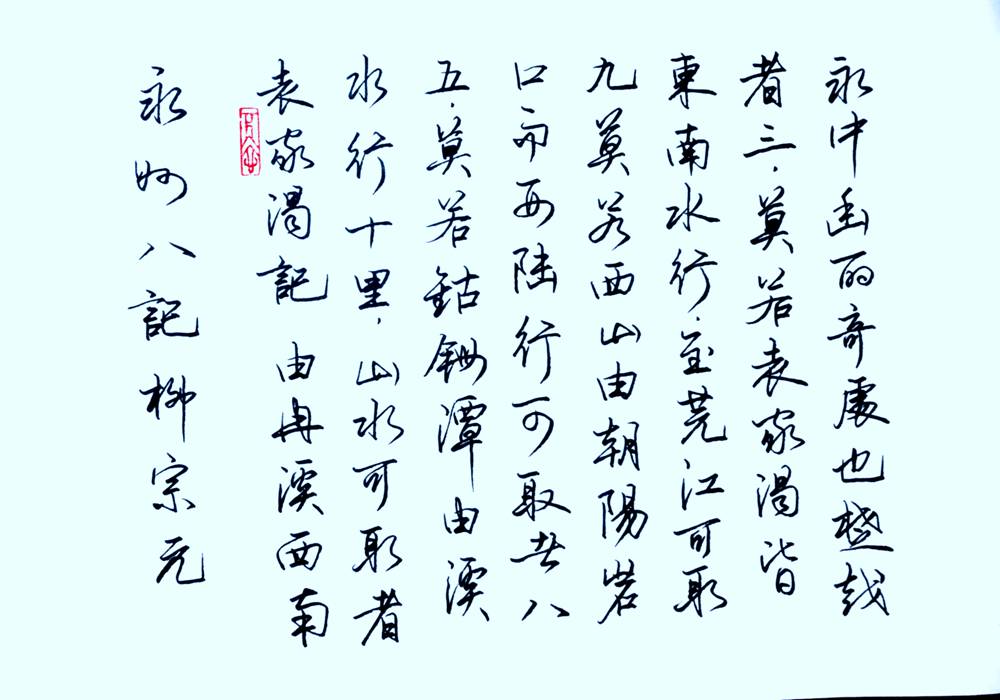 永中幽丽奇處也楚越
者三，莫若袁家渴皆
東南水行，至芜江可取
九莫若西山由朝陽岩
口而西陆行可取者八
五，莫若鈷鉧潭由溪
水行十里，山水可取者
袁家渴記 由冉溪西南
永州八記柳宗元